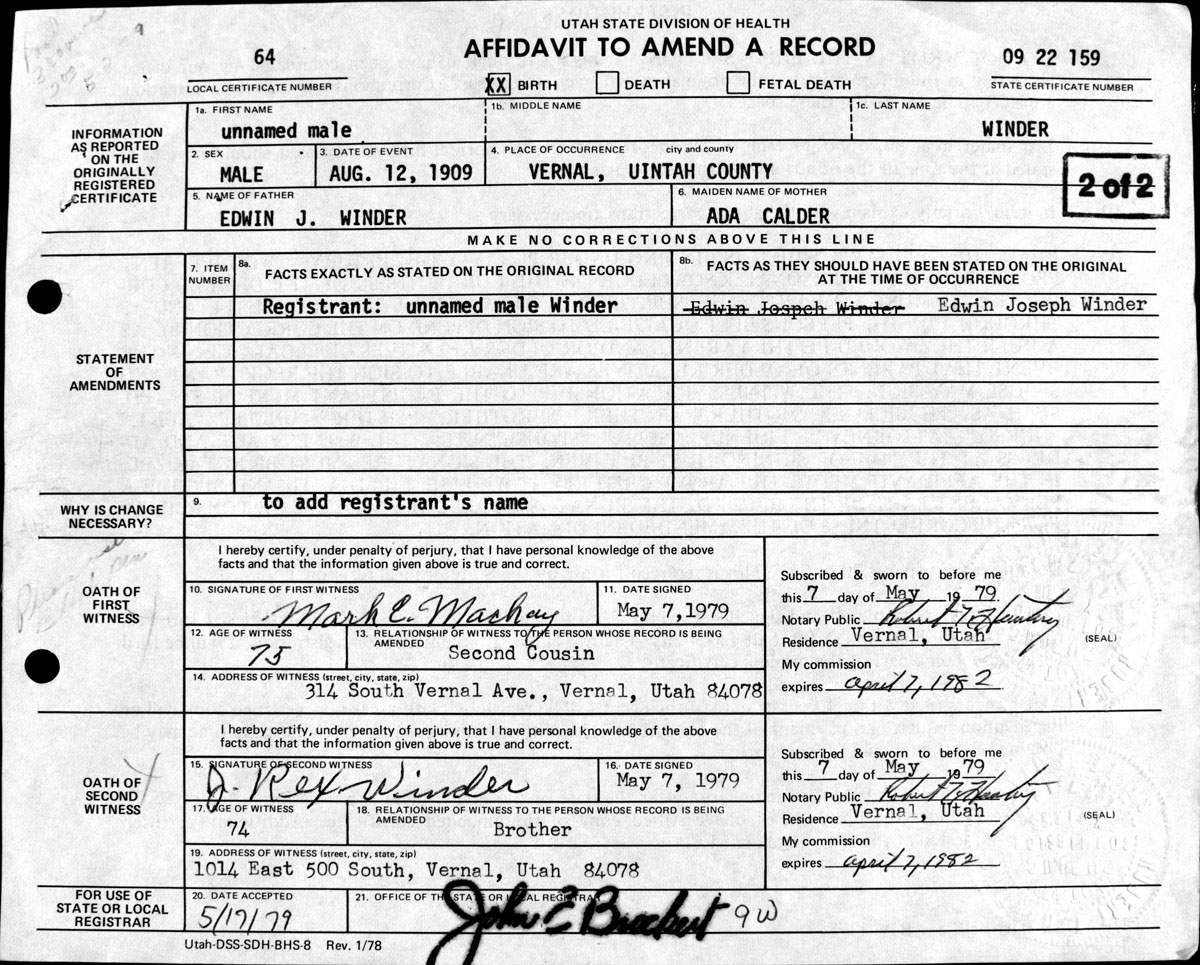 UTAH STATE DIVISION OF HEALTH
AFFIDAVIT TO AMEND A RECORD
64
LOCAL CERTIFICATE NUMBER
XX BIRTH DEATH FETAL DEATH
09 22 159
STATE CERTIFICATE NUMBER
INFORMATION
AS REPORTED
ON THE
ORIGINALLY
REGISTERED
CERTIFICATE
1a. FIRST NAME 1b. MIDDLE NAME 1c. LAST NAME
unnamed male WINDER
2. SEX 3. DATE OF EVENT 4. PLACE OF OCCURRENCE city and county
MALE AUG. 12, 1909 VERNAL, UINTAH COUNTY
2 of 2
5. NAME OF FATHER 6. MAIDEN NAME OF MOTHER
EDWIN J. WINDER ADA CALDER
MAKE NO CORRECTIONS ABOVE THIS LINE
STATEMENT
OF
AMENDMENTS
7. ITEM
NUMBER
8a. FACTS EXACTLY AS STATED ON THE ORIGINAL RECORD
8b. FACTS AS THEY SHOULD HAVE BEEN STATED ON THE ORIGINAL
AT THE TIME OF OCCURRENCE
Registrant: unnamed male Winder Edwin Jospeh Winder Edwin Joseph Winder
WHY IS CHANGE
NECESSARY?
9. to add registrant's name
OATH OF
FIRST
WITNESS
I hereby certify, under penalty of perjury, that I have personal knowledge of the above
facts and that the information given above is true and correct.
10. SIGNATURE OF FIRST WITNESS 11. DATE SIGNED
Mark E. Mackay May 7,1979
12. AGE OF WITNESS 13. RELATIONSHIP OF WITNESS TO THE PERSON WHOSE RECORD IS BEING
AMENDED
75 Second Cousin
14. ADDRESS OF WITNESS (street, city, state, zip)
314 South Vernal Ave., Vernal, Utah 84078
Subscribed & sworn to before me
this 7 day of May 19 79.
Notary Public
Residence Vernal, Utah
(SEAL)
My commission
expires April 7, 1982
OATH OF
SECOND
WITNESS
I hereby certify, under penalty of perjury, that I have personal knowledge of the above
facts and that the information given above is true and correct.
15. SIGNATURE OF SECOND WITNESS 16. DATE SIGNED
J. Rex Winder May 7, 1979
17. AGE OF WITNESS 18. RELATIONSHIP OF WITNESS TO THE PERSON WHOSE RECORD IS BEING
AMENDED
74 Brother
19. ADDRESS OF WITNESS (street, city, state, zip)
1014 East 500 South, Vernal, Utah 84078
Subscribed & sworn to before me
this 7 day of May 19 79
Notary Public
Residence Vernal, Utah
(SEAL)
My commission
expires April 7, 1982
FOR USE OF
STATE OR LOCAL
REGISTRAR
20. DATE ACCEPTED 21. OFFICE OF THE STATE OR LOCAL REGISTRAR
5/17/79 John E Brockert
Utah-DSS-SDH-BHS-8 Rev. 1/78